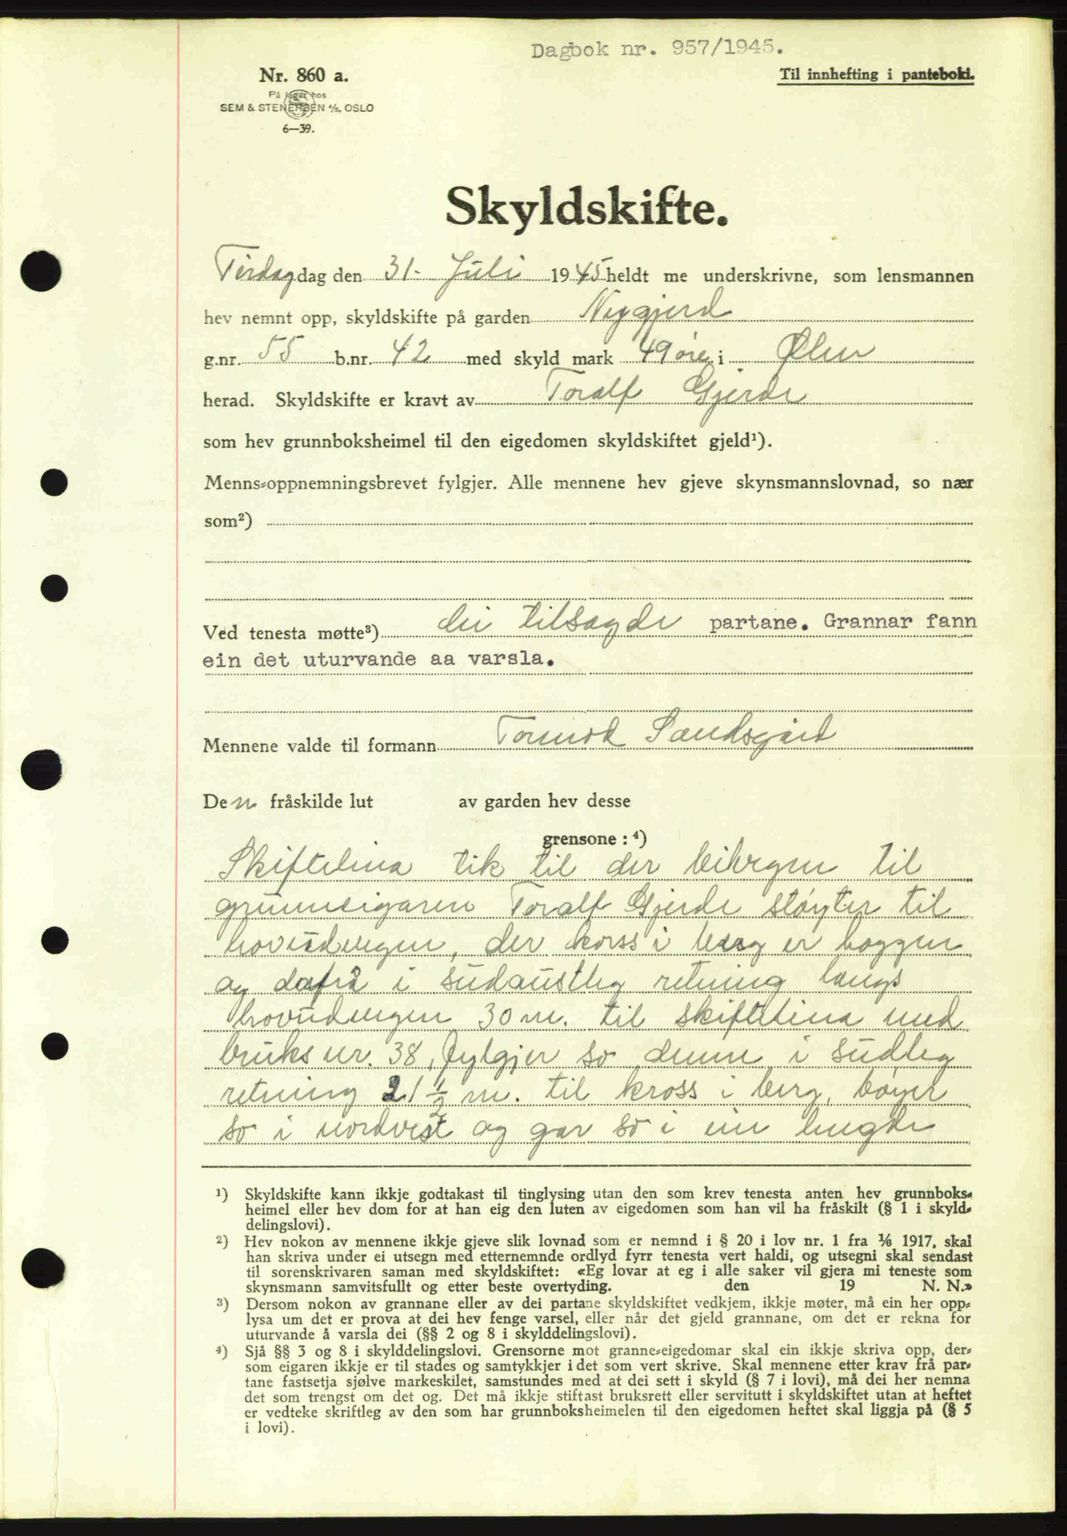 Dagbok nr. 957/1945.
Nr. 860 a.
Til innhefting i pantebok.
På lager hos
SEM & STENERSEN A/S. OSLO
6—39.
Skyldskifte.
Tirdag dag den 31. Juli 1945 heldt me underskrivne, som lensmannen
hev nemnt opp, skyldskifte på garden Nygjerd
g.nr. 55 b.nr. 42 med skyld mark 49 øre i Ølen
herad. Skyldskifte er kravt av Toralf Gjerde
som hev grunnboksheimel til den eigedomen skyldskiftet gjeld¹).
Menns-oppnemningsbrevet fylgjer. Alle mennene hev gjeve skynsmannslovnad, so nær
som²)
Ved tenesta møtte³) dei tilsagde partane. Grannar fann
ein det uturvande aa varsla.
Mennene valde til formann Tormod Sandsgård
Den fråskilde lut av garden hev desse
grensone : ⁴)
Skiftelina tik til der bilvegen til
grunneigaren Toralf Gjerde støyter til
hovudvegen, der kross i berg er hoggen
og dafrå i sudaustleg retning langs
hovudvegen 30 m. til skiftelina med
bruks nr. 38, fylgjer so denne i sudleg
retning 21 ½ m. til kross i berg, bøyer
so i nordvest og gar so i ein lengde
¹) Skyldskifte kann ikkje godtakast til tinglysing utan den som krev tenesta anten hev grunnboks-
heimel eller hev dom for at han eig den luten av eigedomen som han vil ha fråskilt (§ 1 i skyld-
delingslovi).
²) Hev nokon av mennene ikkje gjeve slik lovnad som er nemnd i § 20 i lov nr. 1 fra 1/6 1917, skal
han skriva under ei utsegn med etternemnde ordlyd fyrr tenesta vert haldi, og utsegni skal sendast
til sorenskrivaren saman med skyldskiftet: «Eg lovar at eg i alle saker vil gjera mi teneste som
skynsmann samvitsfullt og etter beste overtyding. den 19 N. N.»
³) Dersom nokon av grannane eller av dei partane skyldskiftet vedkjem, ikkje møter, må ein her opp-
lysa um det er prova at dei hev fenge varsel, eller når det gjeld grannane, om det er rekna for
uturvande å varsla dei (§§ 2 og 8 i skylddelingslovi).
⁴) Sjå §§ 3 og 8 i skylddelingslovi. Grensorne mot granne-eigedomar skal ein ikkje skriva opp, der-
som eigaren ikkje er til stades og samtykkjer i det som vert skrive. Skal mennene etter krav frå par-
tane fastsetja sjølve markeskilet, samstundes med at dei sett i skyld (§ 7 i lovi), må dei her nemna
det som trengst om det og. Det må ikkje stiftast bruksrett eller servitutt i skyldskiftet utan at heftet
er vedteke skriftleg av den som har grunnboksheimelen til den eigedomen heftet skal liggja på (§ 5
i lovi).